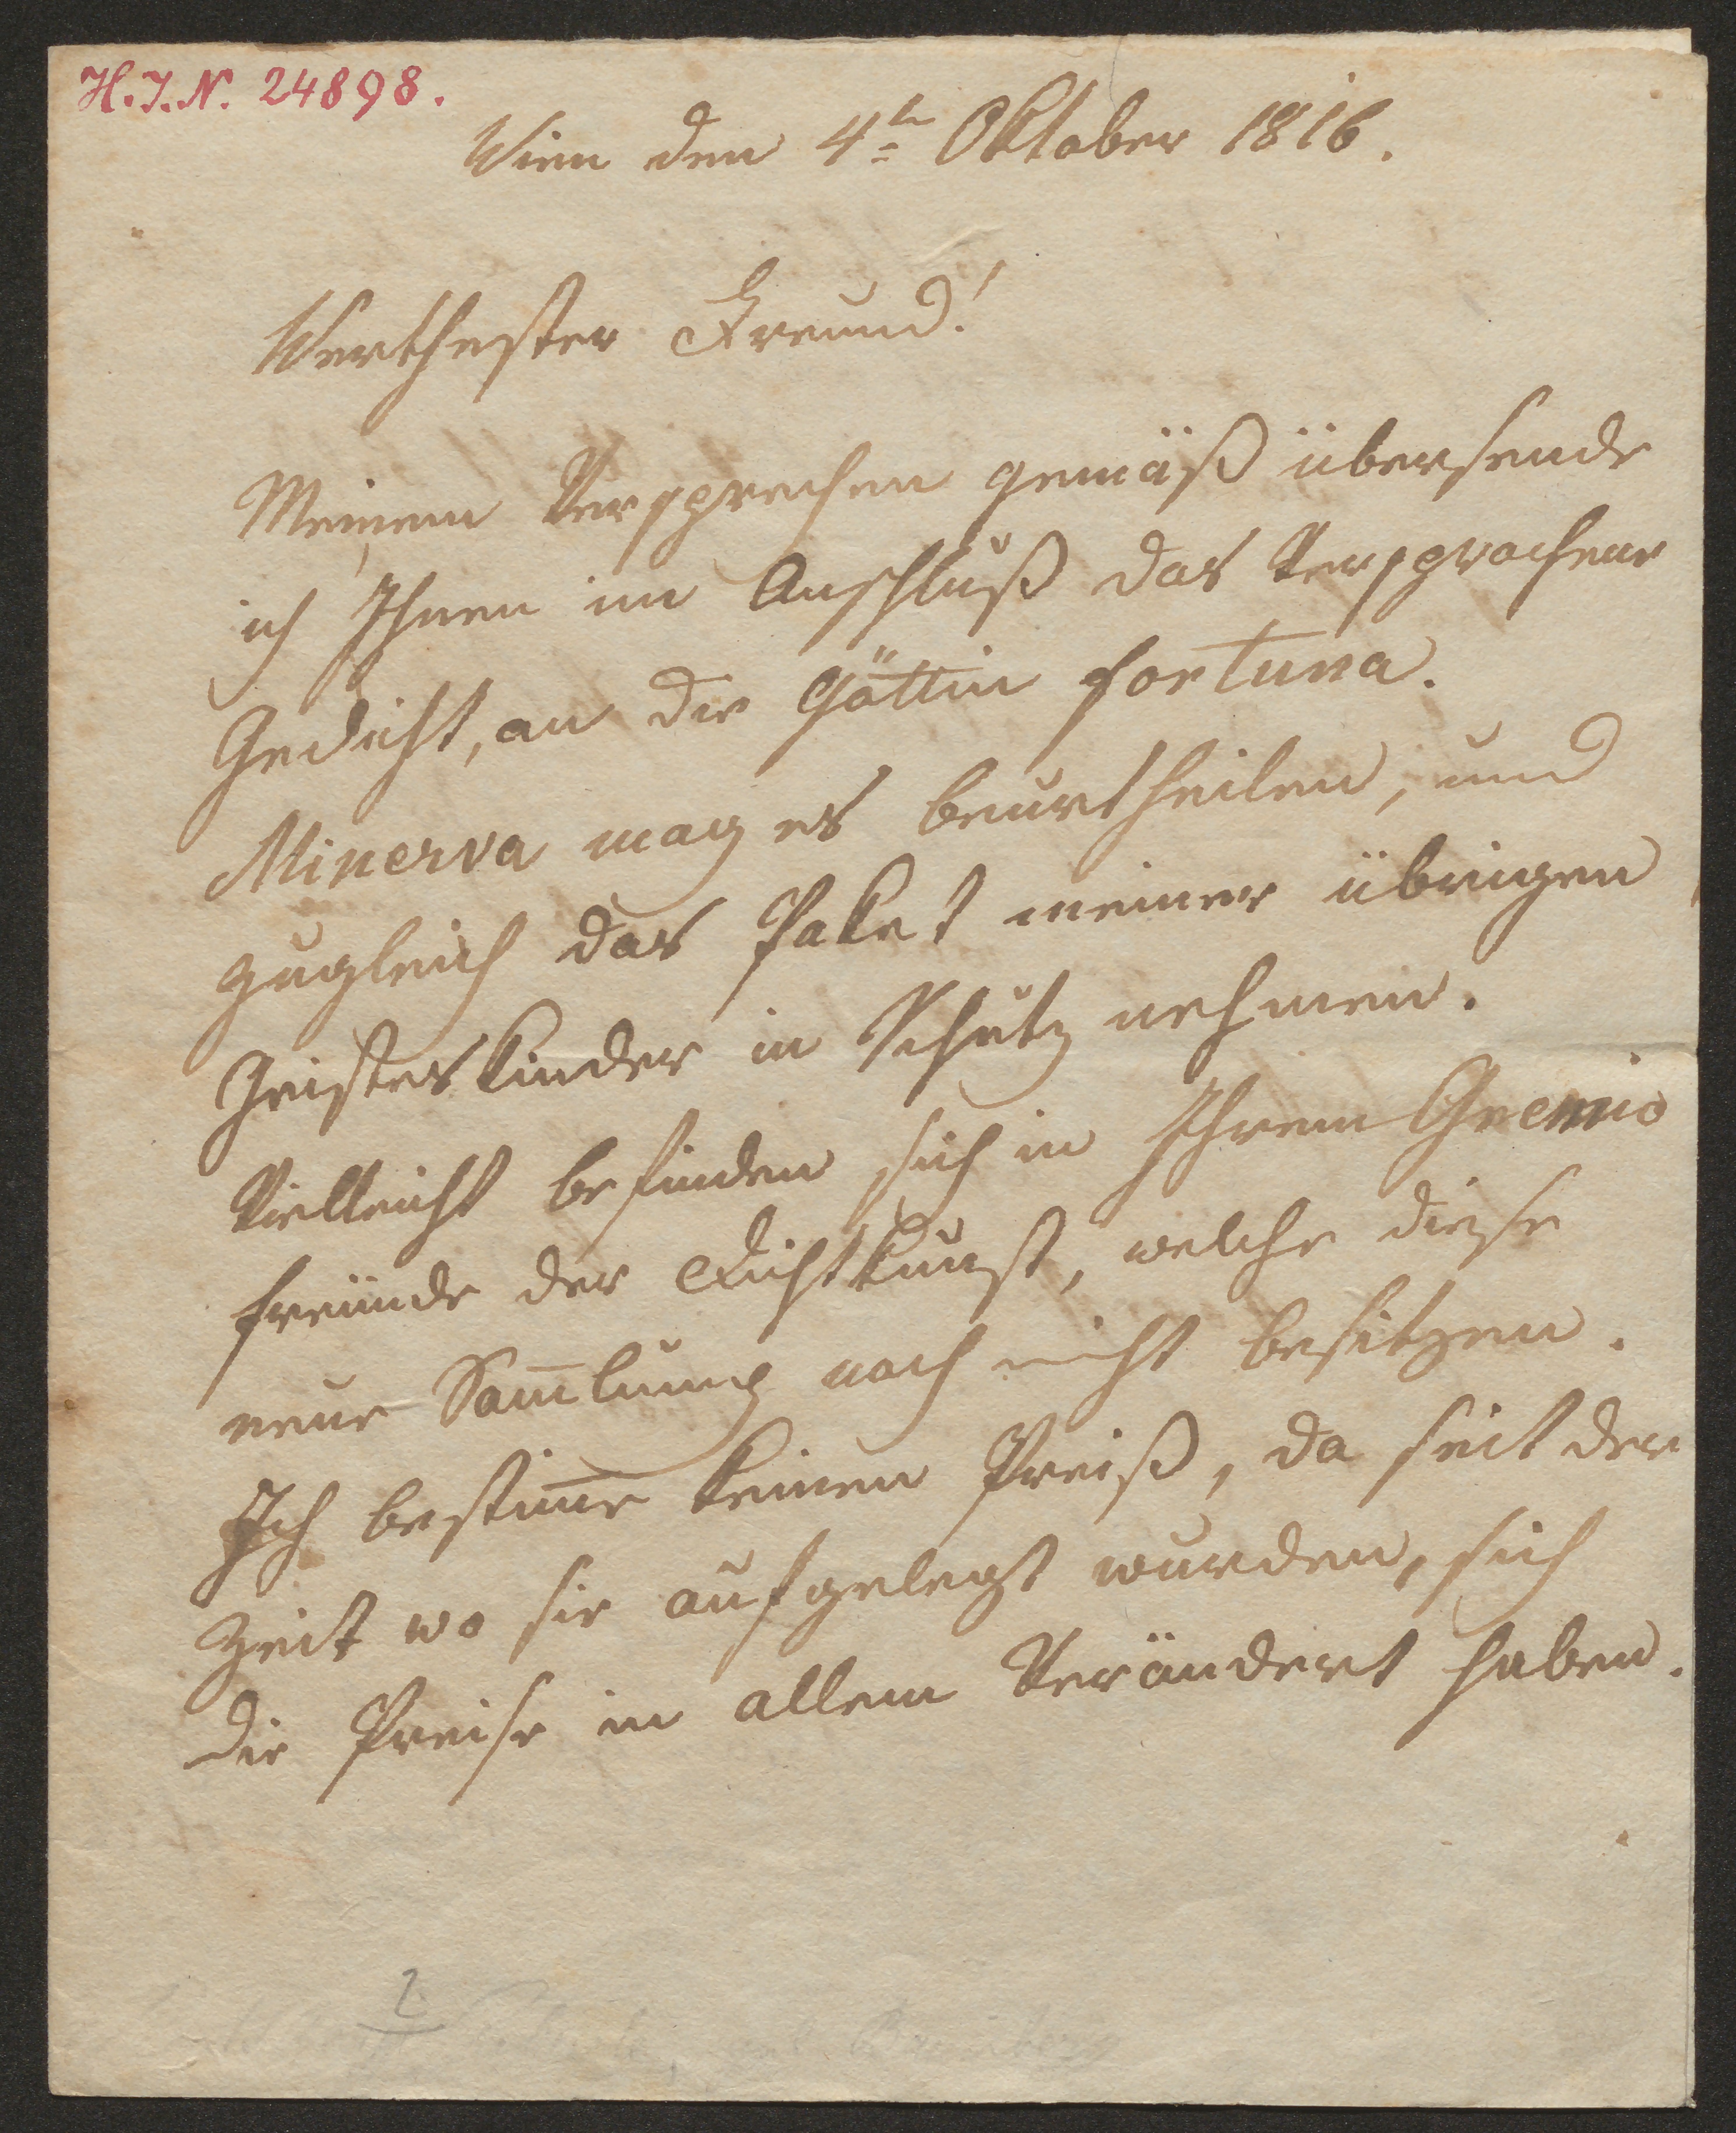 H.I.N. 24898.
Wien den 4tn Oktober 1816.
Werthester Freund!
Meinem Versprechen gemäß übersende
ich Ihnen im Anschluß das Versprochene
Gedicht, an die Göttin Fortuna.
Minerva mag es beurtheilen, und
zugleich das Paket meiner übrigen
Geisteskinder in Schutz nehmen.
Vielleicht befinden sich in Ihrem Gremio
Freunde der Dichtkunst, welche diese
neue Sam̄lung noch nicht besitzen.
Ich bestim̄e keinen Preiß, da seit der
Zeit wo sie aufgelegt wurden, sich
die Preise in allem Verändert haben.